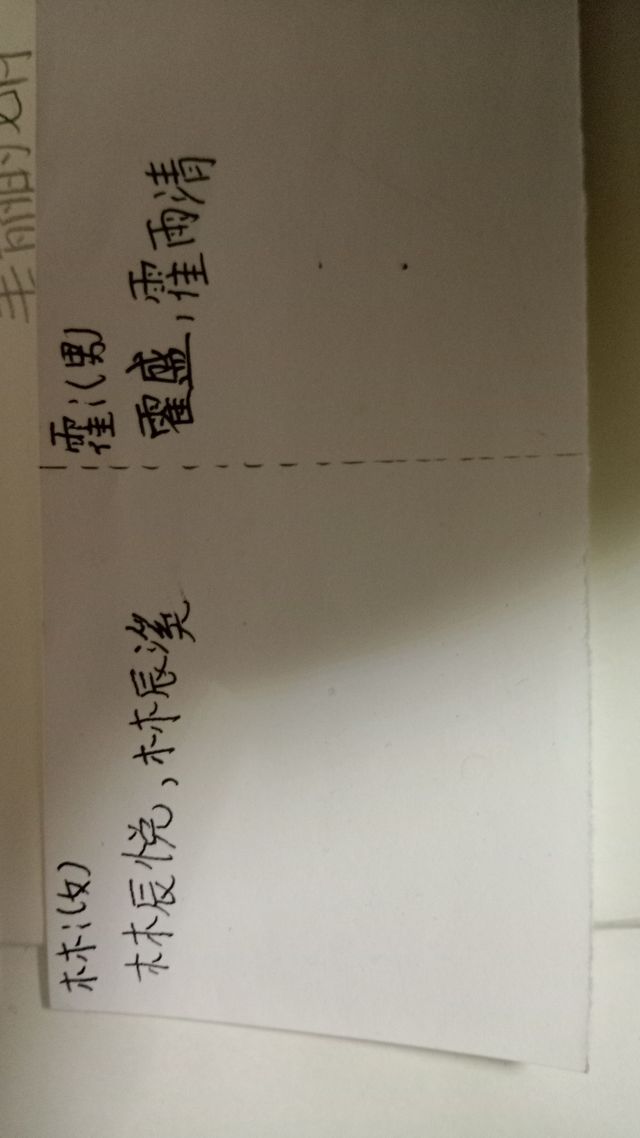 林:(女)
林辰悦,林辰溪
霍:(男)
霍盛,霍雨清